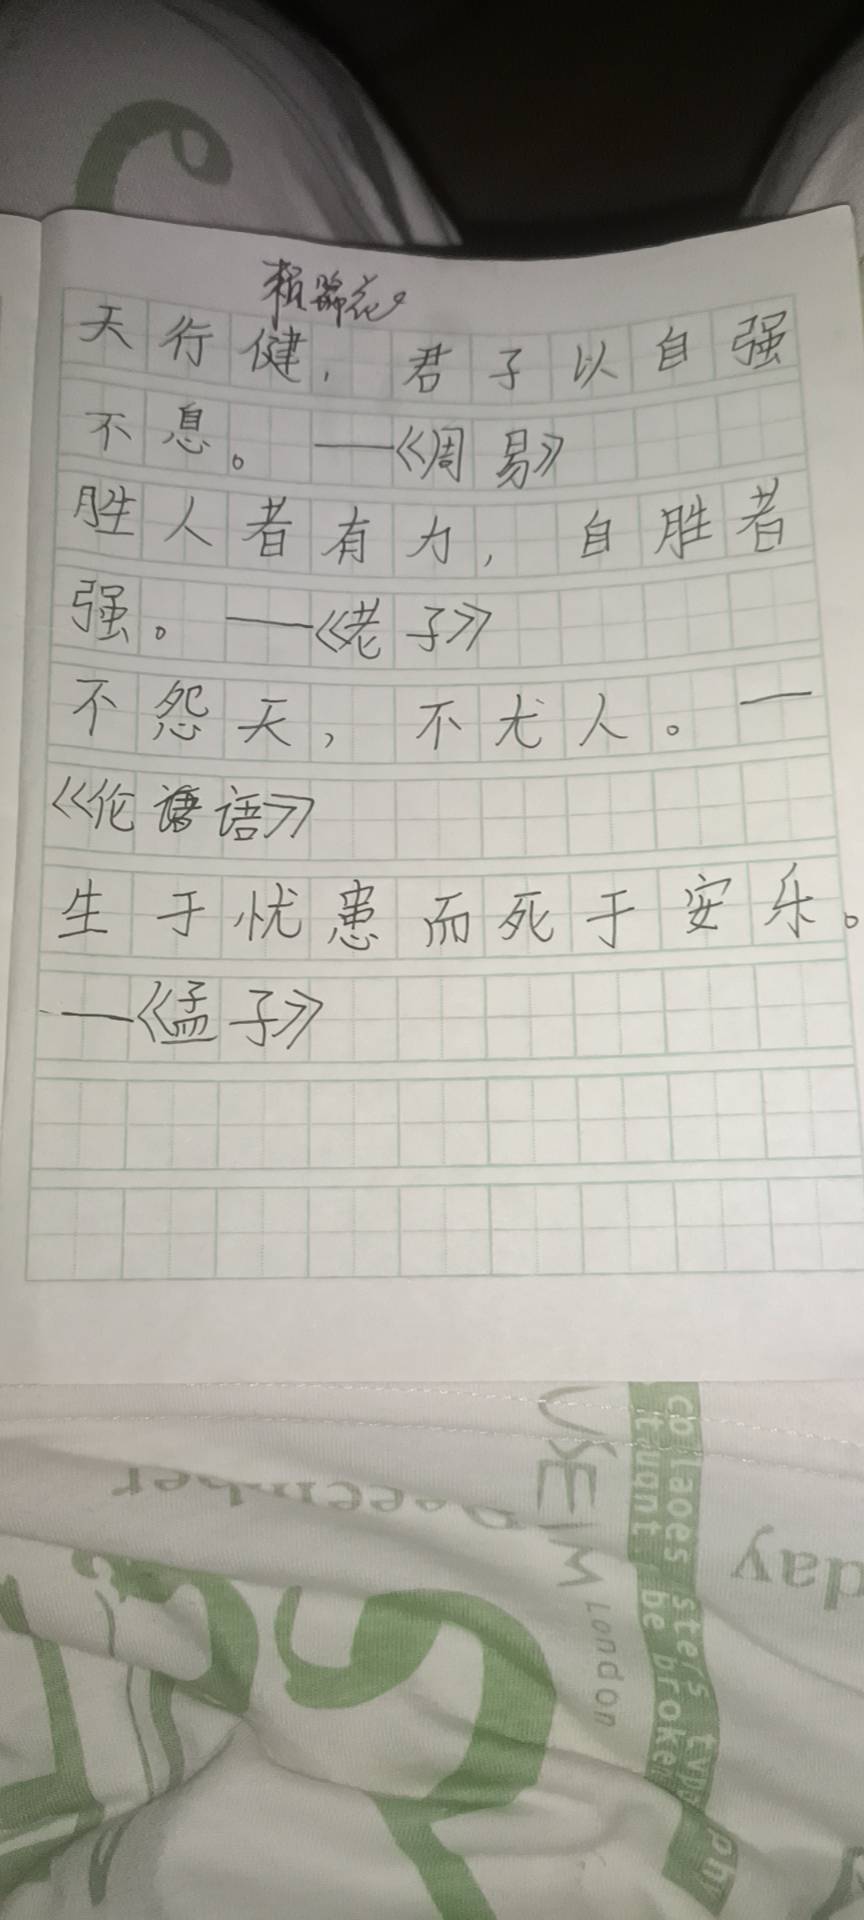 天行健，君子以自强
不息。——《周易》
胜人者有力，自胜者
强。——《老子》
不怨天，不尤人。—
《伦语》
生于忧患而死于安乐。
——《孟子》
co laoes sters typo phy
t uant, be broken
USEIM London
December
day